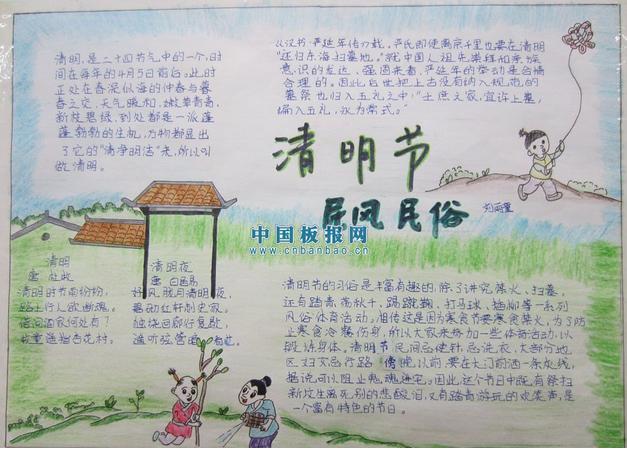 清明,是二十四节气中的一个,时
间在每年的4月5日前后,此时
正处在春深似海的仲春与暮
春之交,天气暖和,嫩草青青,
新枝
到处都是一派
蓬勃勃的生机,万物都显出
了它的"清净明洁"来,所以叫
做清明。
从汉书·严延年传
载,严氏即使离京千里也要在清明
"还归东海扫墓地。"就中国人祖先崇拜和亲族
意识的发达、强固来看,严延年的举动是合情
合理的。因此后世把上古没有纳入规范的
墓祭也归入五礼之中:"士庶之家,宜许上墓,
编入五礼,永为常式。"
清明节
民俗
中国板报网
www.cnbanbao.cn
清明
唐
清明时节雨纷纷,
路上行人欲断魂。
借问酒家何处有?
牧童遥指杏花村。
清明夜
唐 白居易
好风胧月清明夜,
清明节的习俗是丰富有趣的,除了讲究禁火、扫墓,
还有踏青、荡秋千、踢蹴鞠、打马球、插柳等一系列
风俗体育活动。相传这是因为寒食节要寒食禁火,为了防
止寒食冷餐伤身,所以大家来参加一些体育活动,以
锻炼身体。清明节,民间忌使针,忌洗衣,大部分地
区妇女忌行路。傍晚以前,要在大门前洒一条灰线,
据说可以阻止鬼魂进宅。因此,这个节日中既有祭扫
新坟生离死别的悲酸泪,又有踏青游玩的欢笑声,是
一个富有特色的节日。